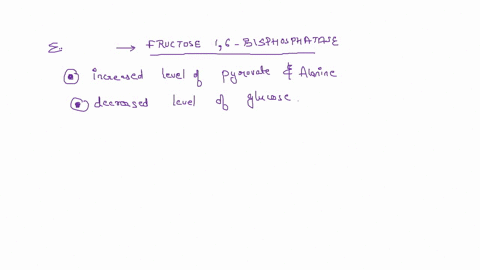 E. → FRUCTOSE 1,6-BISPHOSPHATASE
increased level of pyrovate & Alanine
decreased level of glucose.